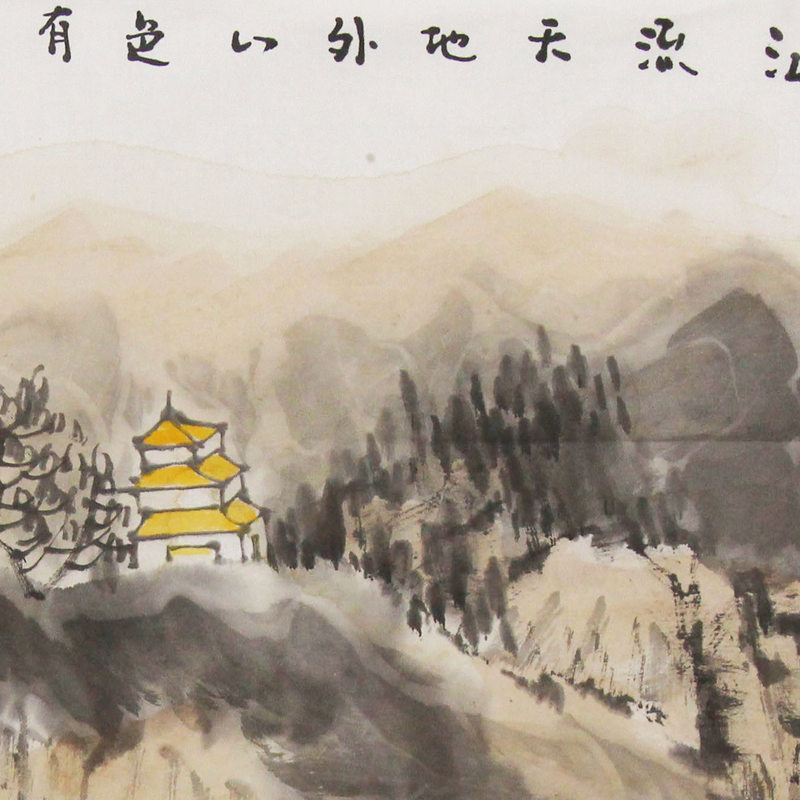 江流天地外山色有